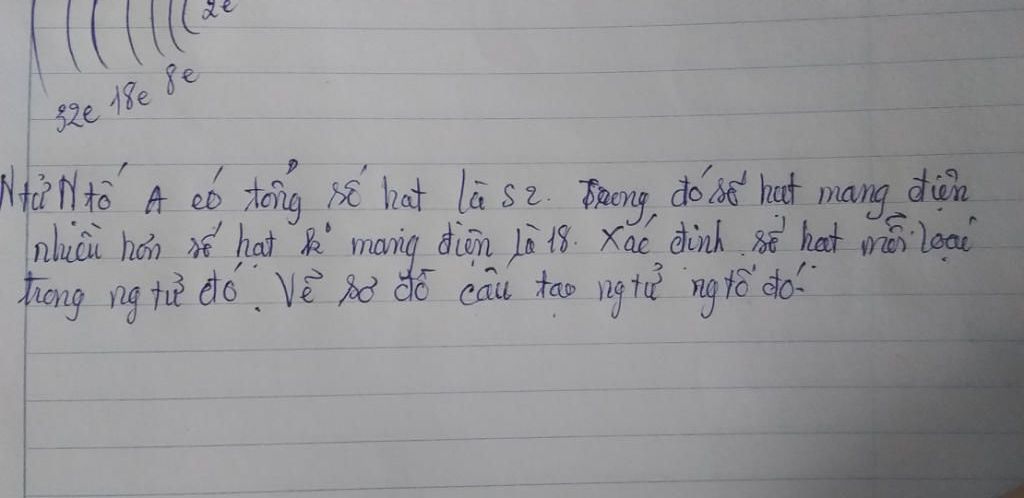 2e
32e 18e 8e
Ntử Ntố A có tổng số hat là 52. Trong đó số hat mang điện
nhiều hơn số hạt k° mang điện là 18. Xác định số hat mỗi loại
trong ng tử đó. Vẽ sơ đồ cấu tao ng tử ng tố đó.